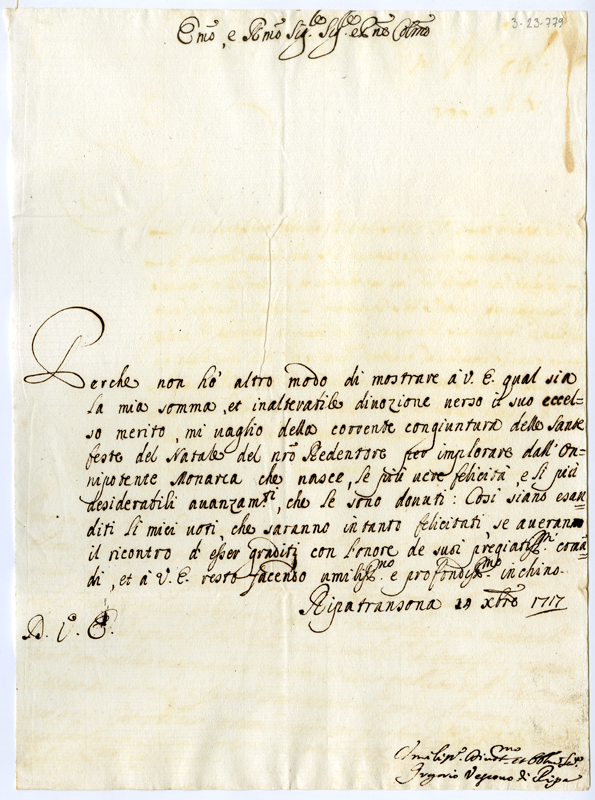 3-23-779
Em̃o, e Rm̃o Sig.re Sig.re e Pñe Colm̃o
Perche non hò altro modo di mostrare à V. E. qual sia
la mia somma, et inalterabile divozione verso il suo eccel=
so merito, mi vaglio della corrente congiuntura delle Sante
feste del Natale del nrõ Redentore per implorare dall'On=
nipotente Monarca che nasce, le più vere felicità, e li più
desiderabili avanzam.ti, che le sono dovuti: Cosi siano esau=
diti li miei voti, che saranno intanto felicitati se averanno
il ricontro d'esser graditi con l'onore de suoi pregiatiss.mi comã=
di, et à V. E. resto facendo umiliss.mo e profondiss.mo inchino.
Ripatransona 24 Xbre 1717
D. V. E.
Umiliss.o Divot.mo et Obl.mo Ser.
Gregorio Vescovo di Ripa